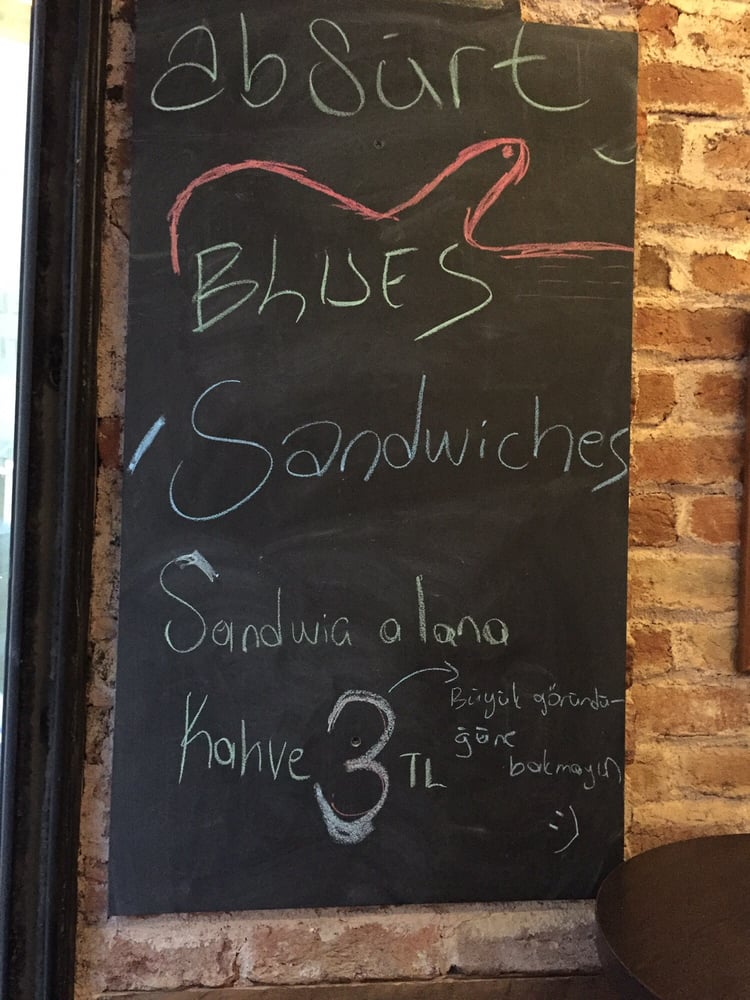 absürt
BLUES
Sandwiches
Sandwia alana
Kahve 3 TL
Büyük göründü-
ğüne
bakmayın
:)